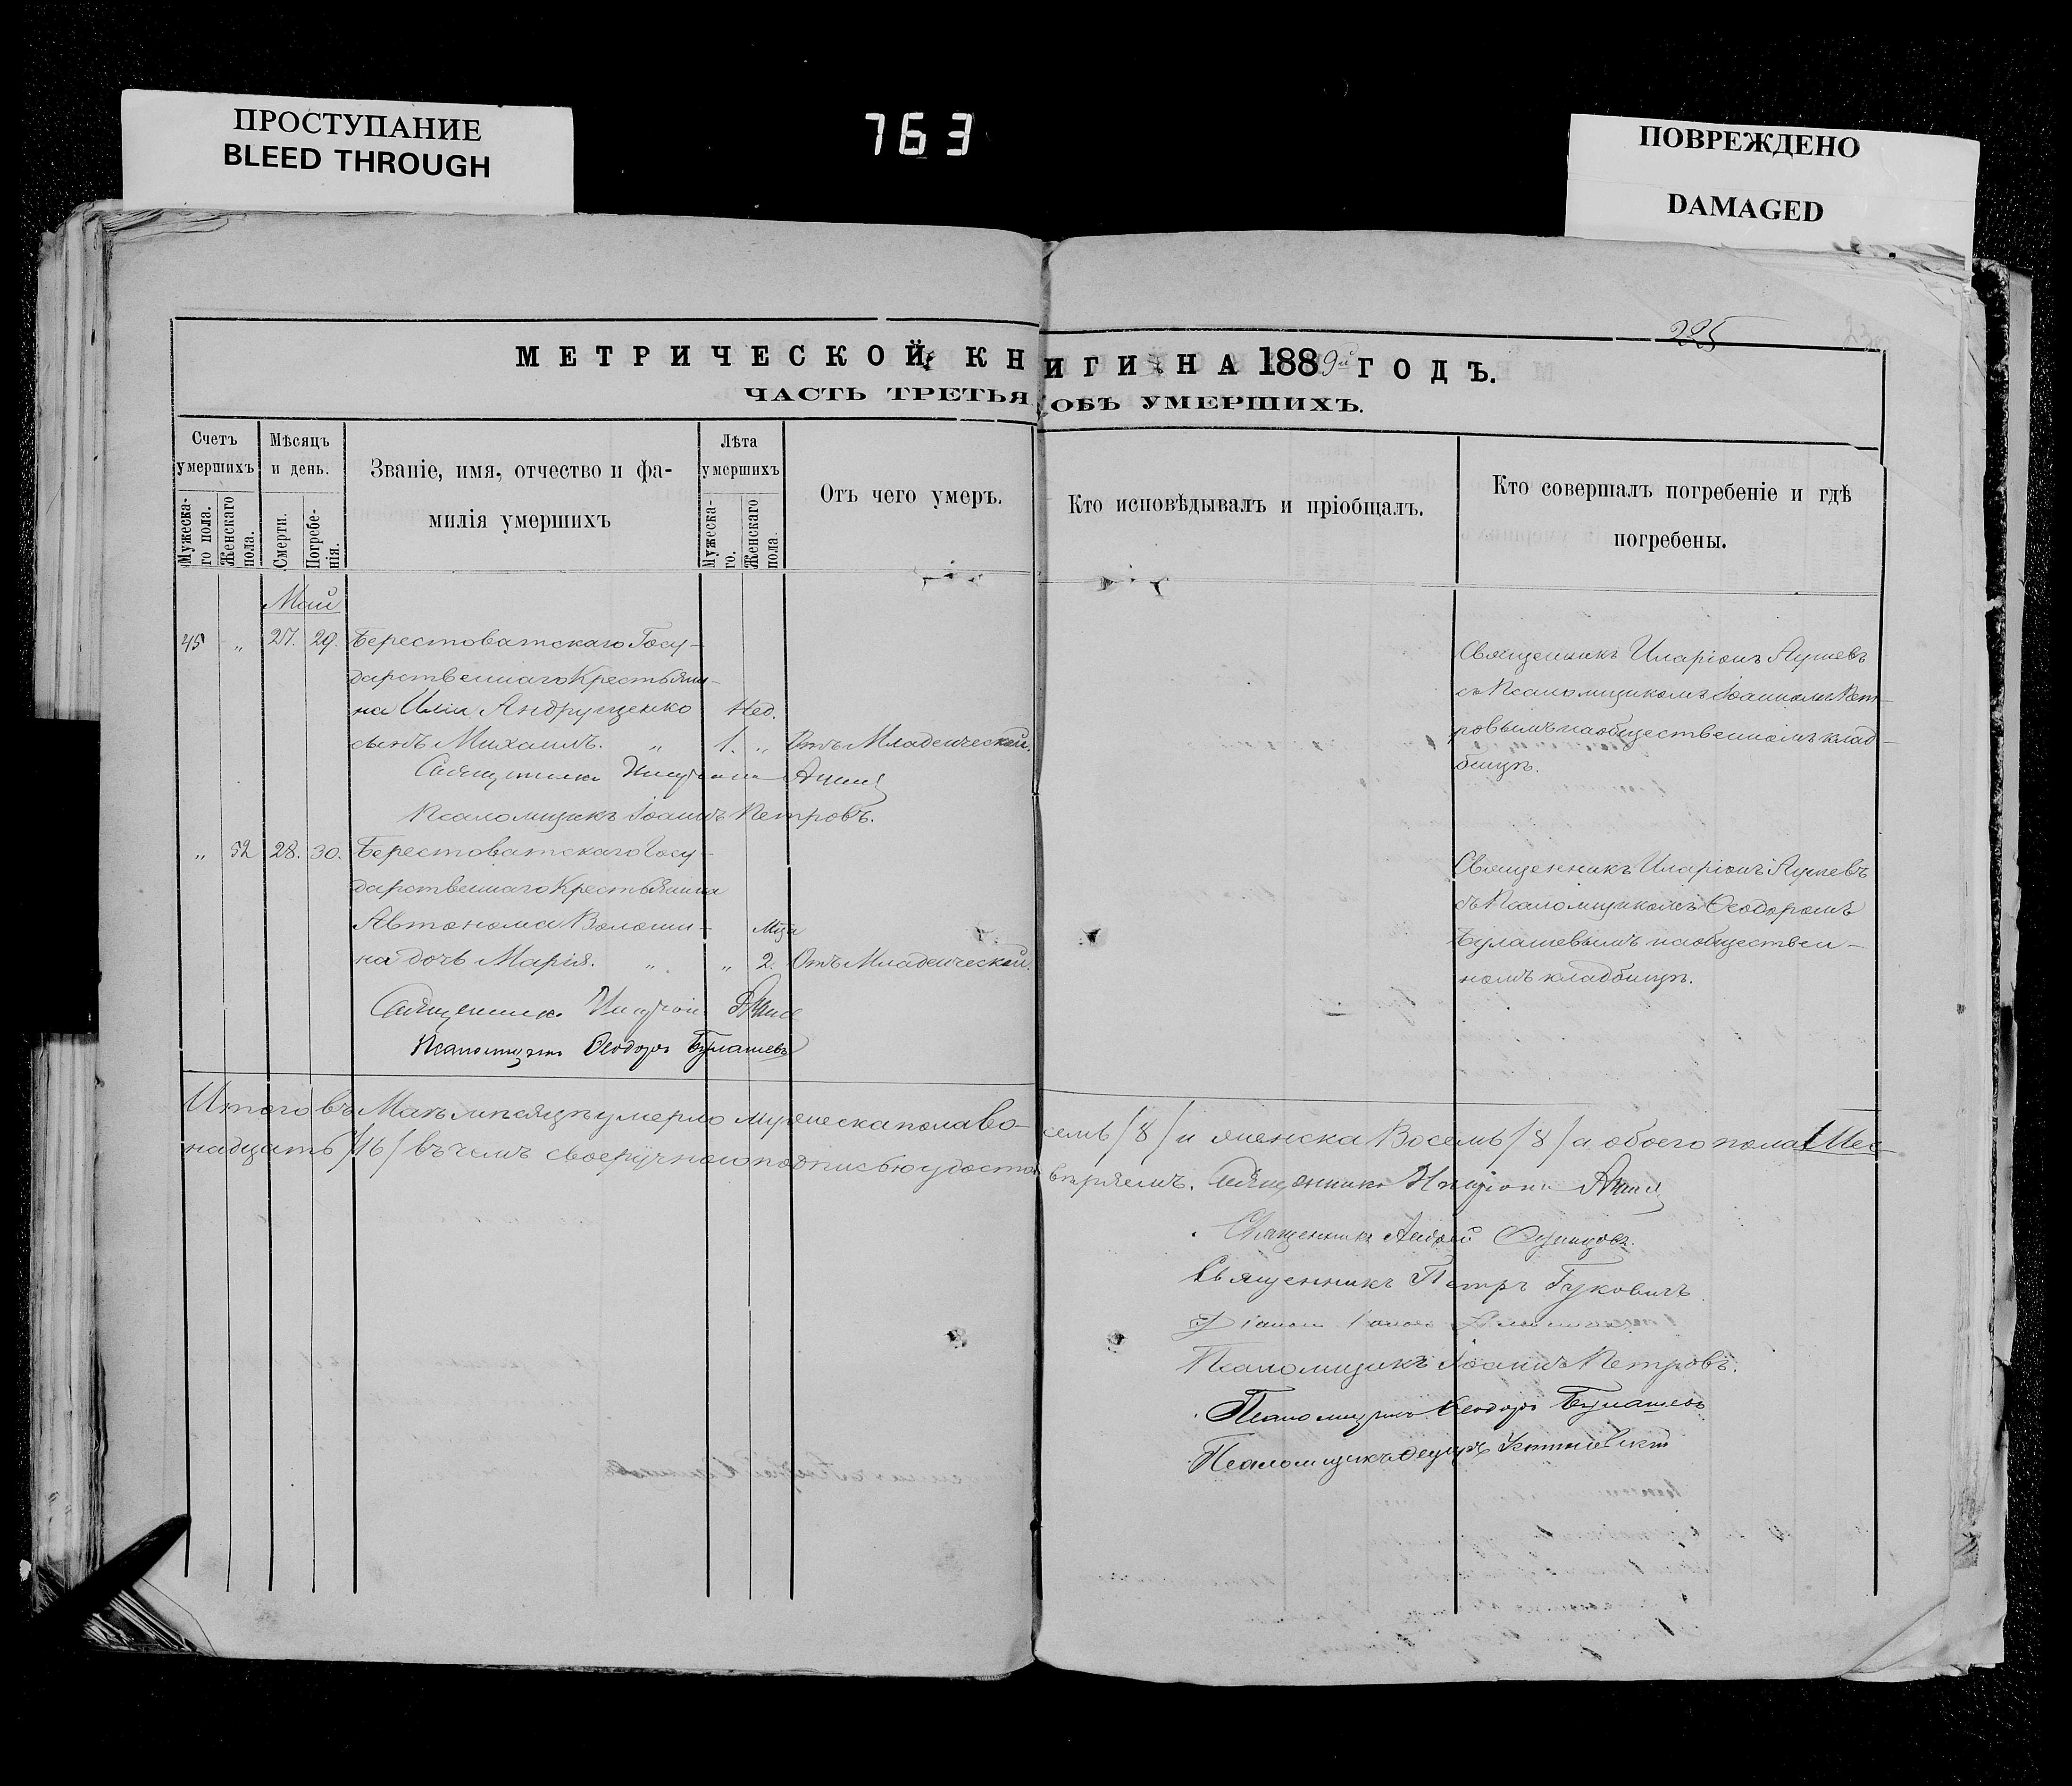 ПРОСТУПАНИЕ
BLEED THROUGH
763
ПОВРЕЖДЕНО
DAMAGED
225
МЕТРИЧЕСКОЙ КНИГИ НА 1889й ГОДЪ.
ЧАСТЬ ТРЕТЬЯ ОБЪ УМЕРШИХЪ.
Счетъ умершихъ
Мужескаго пола.
Женскаго пола.
Мѣсяцъ и день.
Смерти.
Погребенія.
Званіе, имя, отчество и фамилія умершихъ
Лѣта умершихъ
Мужескаго.
Женскаго пола.
Отъ чего умеръ.
Кто исповѣдывалъ и пріобщалъ.
Кто совершалъ погребеніе и гдѣ погребены.
Май
45 „ 27. 29. Берестоватскаго Госу-
дарственнаго Крестьяни-
на Иліи Андрущенко Нед.
сынъ Михаилъ. „ 1. „ Отъ Младенческой.
Священникъ Иларіонъ
Псаломщикъ Іоаннъ Петровъ.
Священникъ Иларіонъ
съ Псаломщикомъ Іоанномъ Пет-
ровымъ на общественномъ клад-
бищѣ.
„ 52 28. 30. Берестоватскаго Госу-
дарственнаго Крестьянина
Автонома Волоши- Мца
на дочь Марія. „ „ 2. Отъ Младенческой.
Священникъ Иларіонъ
Псаломщикъ Ѳеодоръ Булашевъ
Священникъ Иларіонъ
съ Псаломщикомъ Ѳеодоромъ
Булашевымъ на обществен-
номъ кладбищѣ.
Итого въ Маѣ мѣсяцѣ умерло мужеска пола Восемь /8/ и женска Восемь /8/ а обоего пола Шес-
надцать /16/ въ чемъ своеручною подписью удостовѣряемъ. Священникъ Иларіонъ
Священникъ Андрей
Священникъ Петръ Гуковичъ
Псаломщикъ Іоаннъ Петровъ.
Псаломщикъ Ѳеодоръ Булашевъ
Псаломщикъ